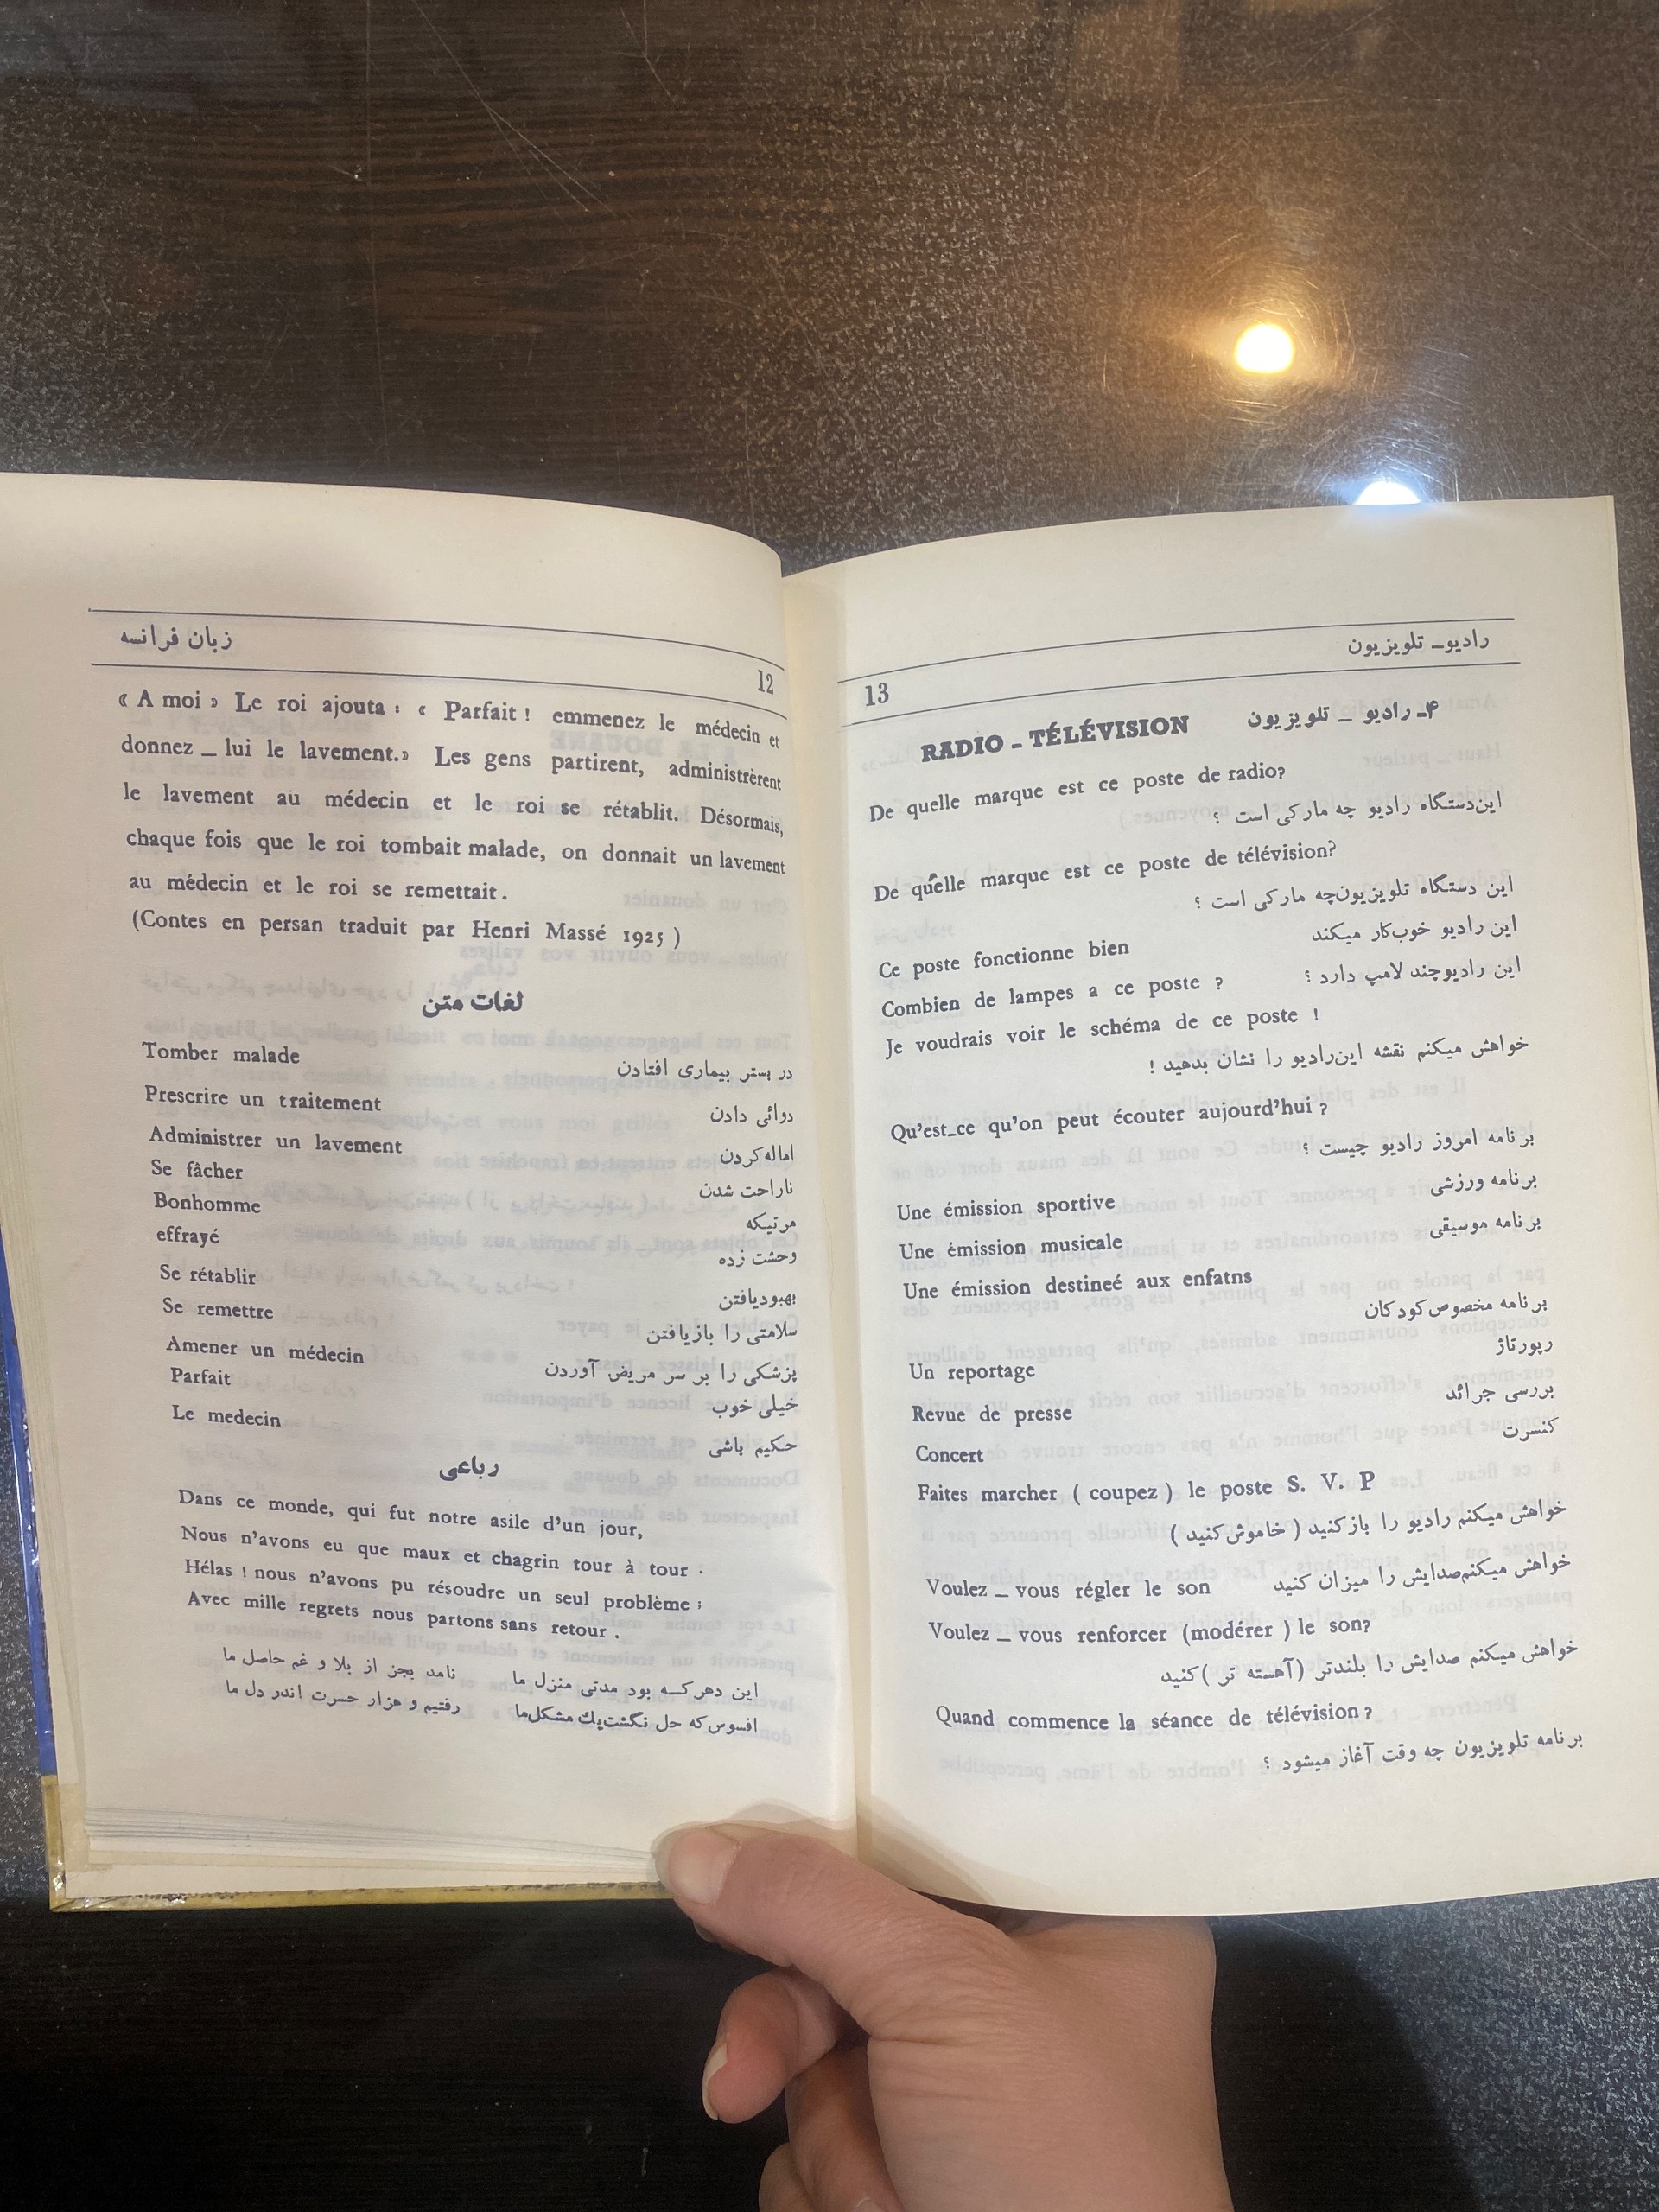 زبان فرانسه
12
« A moi » Le roi ajouta : « Parfait ! emmenez le médecin et
donnez _ lui le lavement.» Les gens partirent, administrèrent
le lavement au médecin et le roi se rétablit. Désormais,
chaque fois que le roi tombait malade, on donnait un lavement
au médecin et le roi se remettait .
(Contes en persan traduit par Henri Massé 1925 )
لغات متن
Tomber malade در بستر بیماری افتادن
Prescrire un traitement دوائی دادن
Administrer un lavement اماله‌کردن
Se fâcher ناراحت شدن
Bonhomme مرتیکه
effrayé وحشت زده
Se rétablir بهبودیافتن
Se remettre سلامتی را بازیافتن
Amener un médecin پزشکی را بر سر مریض آوردن
Parfait خیلی خوب
Le medecin حکیم باشی
رباعی
Dans ce monde, qui fut notre asile d'un jour,
Nous n'avons eu que maux et chagrin tour à tour .
Hélas ! nous n'avons pu résoudre un seul problème ;
Avec mille regrets nous partons sans retour .
این دهرکـه بود مدتی منزل ما نامد بجز از بلا و غم حاصل ما
افسوس‌که حل نگشت‌یك مشکل‌ما رفتیم و هزار حسرت اندر دل ما
رادیوـ تلویزیون
13
RADIO - TÉLÉVISION ۴ـ رادیو _ تلویزیون
De quelle marque est ce poste de radio?
این‌دستگاه رادیو چه مارکی است ؟
De quelle marque est ce poste de télévision?
این دستگاه تلویزیون‌چه مارکی است ؟
Ce poste fonctionne bien این رادیو خوب‌کار میکند
Combien de lampes a ce poste ? این رادیوچند لامپ دارد ؟
Je voudrais voir le schéma de ce poste !
خواهش میکنم نقشه این‌رادیو را نشان بدهید !
Qu'est_ce qu'on peut écouter aujourd'hui ?
برنامه امروز رادیو چیست ؟
Une émission sportive برنامه ورزشی
Une émission musicale برنامه موسیقی
Une émission destineé aux enfatns
برنامه مخصوص‌کودکان
Un reportage رپورتاژ
Revue de presse بررسی جرائد
Concert کنسرت
Faites marcher ( coupez ) le poste S. V. P
خواهش میکنم رادیو را بازکنید ( خاموش‌کنید )
Voulez _ vous régler le son خواهش میکنم‌صدایش را میزان کنید
Voulez _ vous renforcer (modérer ) le son?
خواهش میکنم صدایش را بلندتر (آهسته تر )کنید
Quand commence la séance de télévision ?
برنامه تلویزیون چه وقت آغاز میشود ؟